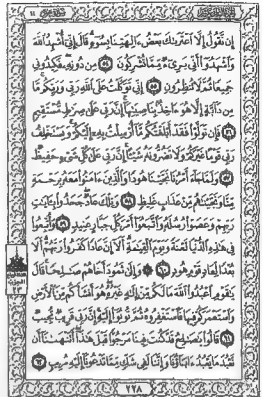 إِن نَّقُولُ إِلَّا اعْتَرَىٰكَ بَعْضُ ءَالِهَتِنَا بِسُوٓءٍ قَالَ إِنِّيٓ أُشْهِدُ اللَّهَ
وَاشْهَدُوٓا أَنِّي بَرِيٓءٌ مِّمَّا تُشْرِكُونَ ٥٤ مِن دُونِهِ فَكِيدُونِي
جَمِيعًا ثُمَّ لَا تُنظِرُونِ ٥٥ إِنِّي تَوَكَّلْتُ عَلَى اللَّهِ رَبِّي وَرَبِّكُم مَّا
مِن دَآبَّةٍ إِلَّا هُوَ ءَاخِذٌ بِنَاصِيَتِهَآ إِنَّ رَبِّي عَلَىٰ صِرَٰطٍ مُّسْتَقِيمٍ
٥٦ فَإِن تَوَلَّوْا فَقَدْ أَبْلَغْتُكُم مَّآ أُرْسِلْتُ بِهِٓ إِلَيْكُمْ وَيَسْتَخْلِفُ
رَبِّي قَوْمًا غَيْرَكُمْ وَلَا تَضُرُّونَهُ شَيْـًٔا إِنَّ رَبِّي عَلَىٰ كُلِّ شَيْءٍ حَفِيظٌ
٥٧ وَلَمَّا جَآءَ أَمْرُنَا نَجَّيْنَا هُودًا وَالَّذِينَ ءَامَنُوا مَعَهُ بِرَحْمَةٍ
مِّنَّا وَنَجَّيْنَٰهُم مِّنْ عَذَابٍ غَلِيظٍ ٥٨ وَتِلْكَ عَادٌ جَحَدُوا بِـَٔايَٰتِ
رَبِّهِمْ وَعَصَوْا رُسُلَهُ وَاتَّبَعُوٓا أَمْرَ كُلِّ جَبَّارٍ عَنِيدٍ ٥٩ وَأُتْبِعُوا
فِي هَٰذِهِ الدُّنْيَا لَعْنَةً وَيَوْمَ الْقِيَٰمَةِ أَلَآ إِنَّ عَادًا كَفَرُوا رَبَّهُمْ أَلَا
بُعْدًا لِّعَادٍ قَوْمِ هُودٍ ٦٠ وَإِلَىٰ ثَمُودَ أَخَاهُمْ صَٰلِحًا قَالَ
يَٰقَوْمِ اعْبُدُوا اللَّهَ مَا لَكُم مِّنْ إِلَٰهٍ غَيْرُهُ هُوَ أَنشَأَكُم مِّنَ الْأَرْضِ
وَاسْتَعْمَرَكُمْ فِيهَا فَاسْتَغْفِرُوهُ ثُمَّ تُوبُوٓا إِلَيْهِ إِنَّ رَبِّي قَرِيبٌ مُّجِيبٌ
٦١ قَالُوا يَٰصَٰلِحُ قَدْ كُنتَ فِينَا مَرْجُوًّا قَبْلَ هَٰذَآ أَتَنْهَىٰنَآ أَن
نَّعْبُدَ مَا يَعْبُدُ ءَابَآؤُنَا وَإِنَّنَا لَفِي شَكٍّ مِّمَّا تَدْعُونَآ إِلَيْهِ مُرِيبٍ ٦٢
٢٢٨